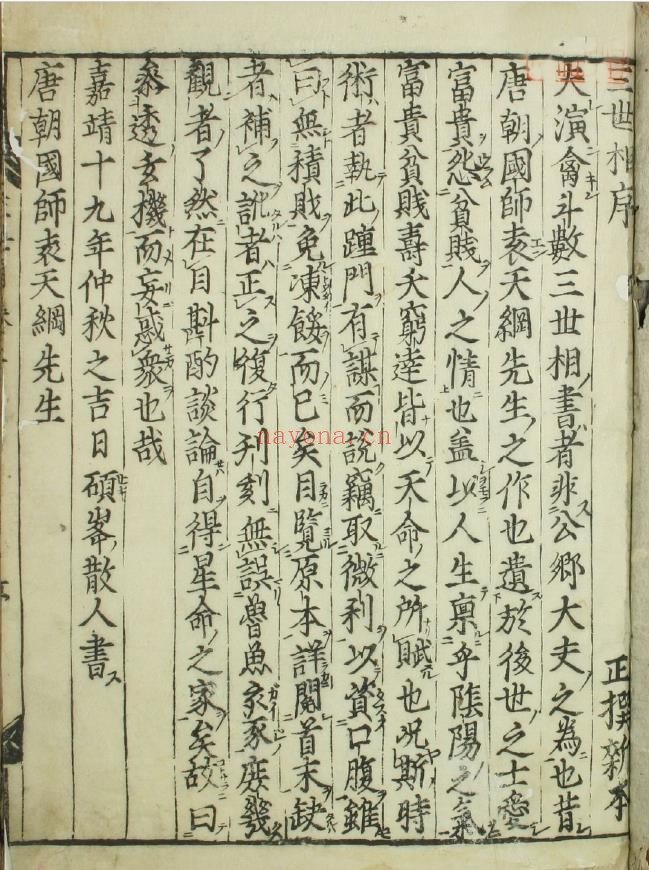 三世相序
正撰新本
大演禽斗數三世相書者非公卿大夫之為也昔
唐朝國師袁天綱先生之作也遺於後世之士愛
富貴怨貧賤人之情也盖以人生稟乎陰陽之氣
富貴貧賤壽夭窮達皆以天命之所賦也况斯時
術者執此踵門有謀而說竊取微利以資口腹雖
曰無積財免凍餒而已矣目覽原本詳閱首末缺
者補之訛者正之復行刋刻無誤魯魚亥豕庶幾
觀者了然在目斟酌談論自得星命之家矣故曰
叅透玄機而妄惑衆也哉
嘉靖十九年仲秋之吉日碩峯散人書
唐朝國師袁天綱先生
nayona.cn